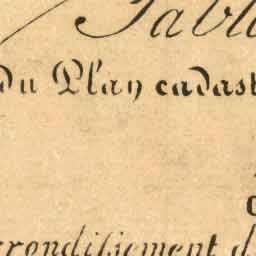 Tabl
du Plan cadast
rrondissement d